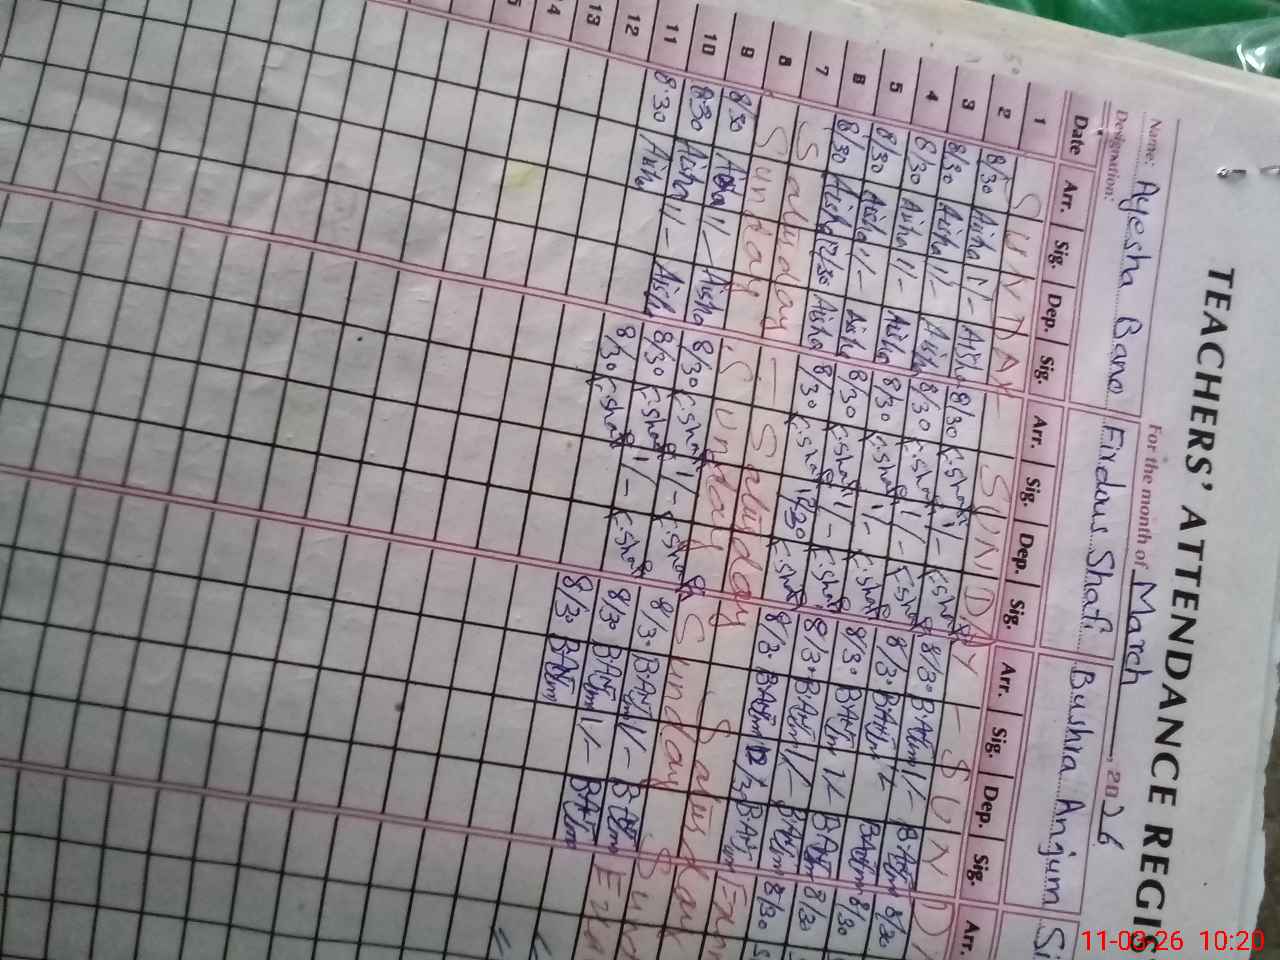 TEACHERS' ATTENDANCE REGIS
Name: Ayesha Bano Firdous Shafi Bushra Anjum Si
Designation: For the month of March, 2026
Date Arr. Sig. Dep. Sig. Arr. Sig. Dep. Sig. Arr. Sig. Dep. Sig. Arr.
1 SUNDAY - SUNDAY - SUND
2 8/30 Aisha 1/- Aisha 8/30 F.Shafi 1/- F.Shafi 8/30 BAnjum 1/- BAnjum 8/30
3 8/30 Aisha 1/- Aisha 8/30 F.Shafi 1/- F.Shafi 8/30 BAnjum 1/- BAnjum 8/30
4 8/30 Aisha 1/- Aisha 8/30 F.Shafi 1/- F.Shafi 8/30 BAnjum 1/- BAnjum 8/30
5 8/30 Aisha 1/- Aisha 8/30 F.Shafi 1/- F.Shafi 8/30 BAnjum 1/- BAnjum 8/30
6 8/30 Aisha 12/30 Aisha 8/30 F.Shafi 12/30 F.Shafi 8/30 BAnjum 12/30 BAnjum 8/30
7 Saturday - Saturday Saturday
8 Sunday Sunday Sunday Sund
9 8/30 Aisha 1/- Aisha 8/30 F.Shafi 1/- F.Shafi 8/30 BAnjum 1/- BAnjum
10 8:30 Aisha 1/- Aisha 8/30 F.Shafi 1/- F.Shafi 8/30 BAnjum 1/- BAnjum
11 8:30 Aisha 8/30 F.Shafi 8/30 BAnjum
12
13
14
15
11-03-26 10:20